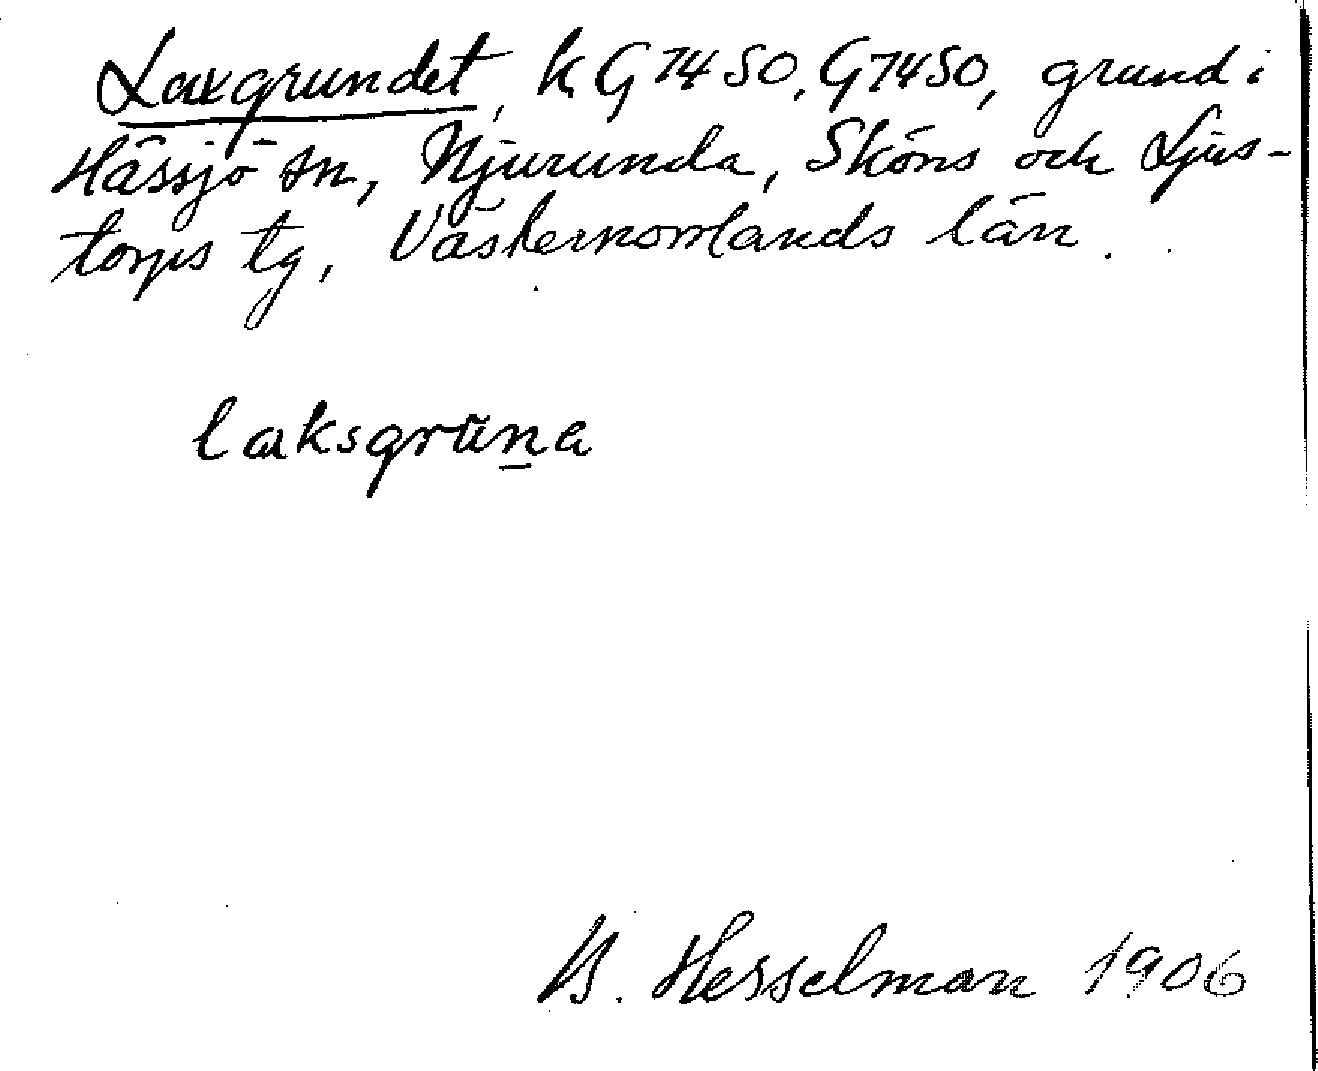 Laxgrundet, k G 7450, G7450, grund i
Hässjö sn, Njurunda, Sköns och Ljus-
torps tg, Västernorrlands län.
laksgruna
B. Hesselman 1906